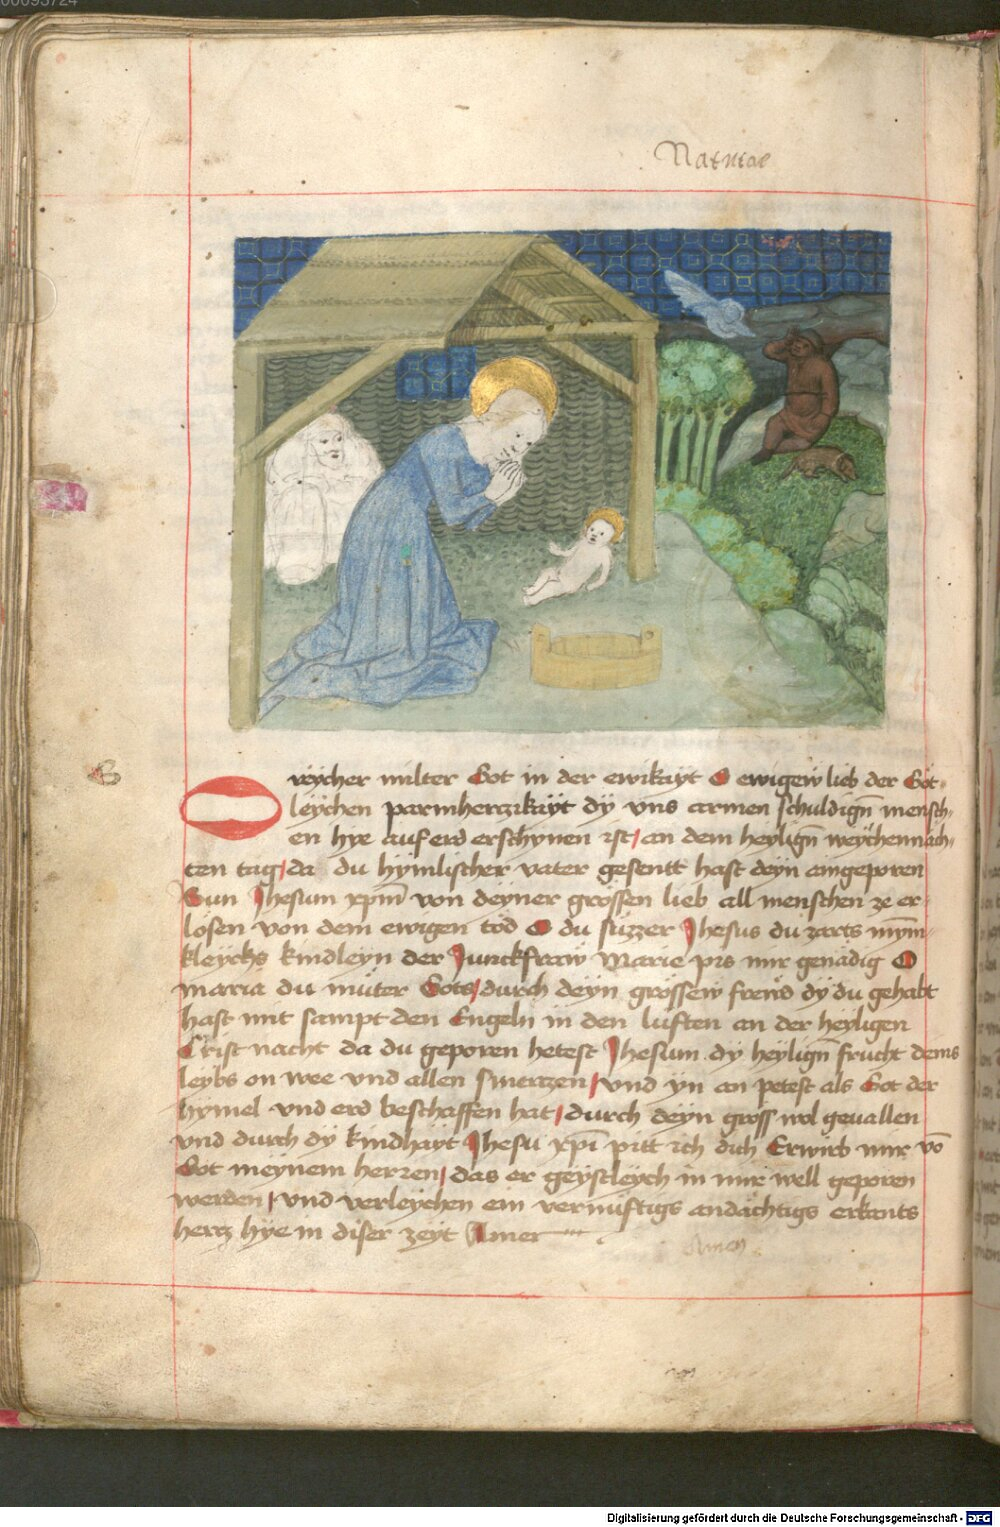 00095724
Natiuitae
O reycher milter Got in der ewikayt O ewigew lieb der Göt-
leychen parmherczikayt dy vns armen schuldign̄ mensch-
en hye auf erd erschynen ist / an dem heylign̄ weychennäch-
ten tag / da du hymlischer vater gesentt hast deyn aingeporen
Sun Jhesum xpm̄ von deyner grossen lieb all menschen ze er-
lösen von dem ewigen tod O du süzzer Jhesus du zarts mym̄-
kleychs kindleyn der Junckfraw Marie pis mir genädig O
maria du müter Gots / durch deyn grossew frewd dy du gehabt
hast mit sampt den Engeln in den luften an der heyligen
Crist nacht da du geporen hetest Jhesum dy heylign̄ frucht deins
leybs on wee vnd allen smerczen / vnd yn an petest als Got der
hymel vnd erd beschaffen hat / durch deyn gross wol geuallen
vnd durch dy kindhayt Jhesu xp̄i pitt ich dich Erwirb mir vō
Got meynem herren / das er geystleych in mir well geporen
werden / vnd verleychen ein vernüftigs andächtigs erkants
hercz hye in diser zeyt Amen
Amen
Digitalisierung gefördert durch die Deutsche Forschungsgemeinschaft - DFG